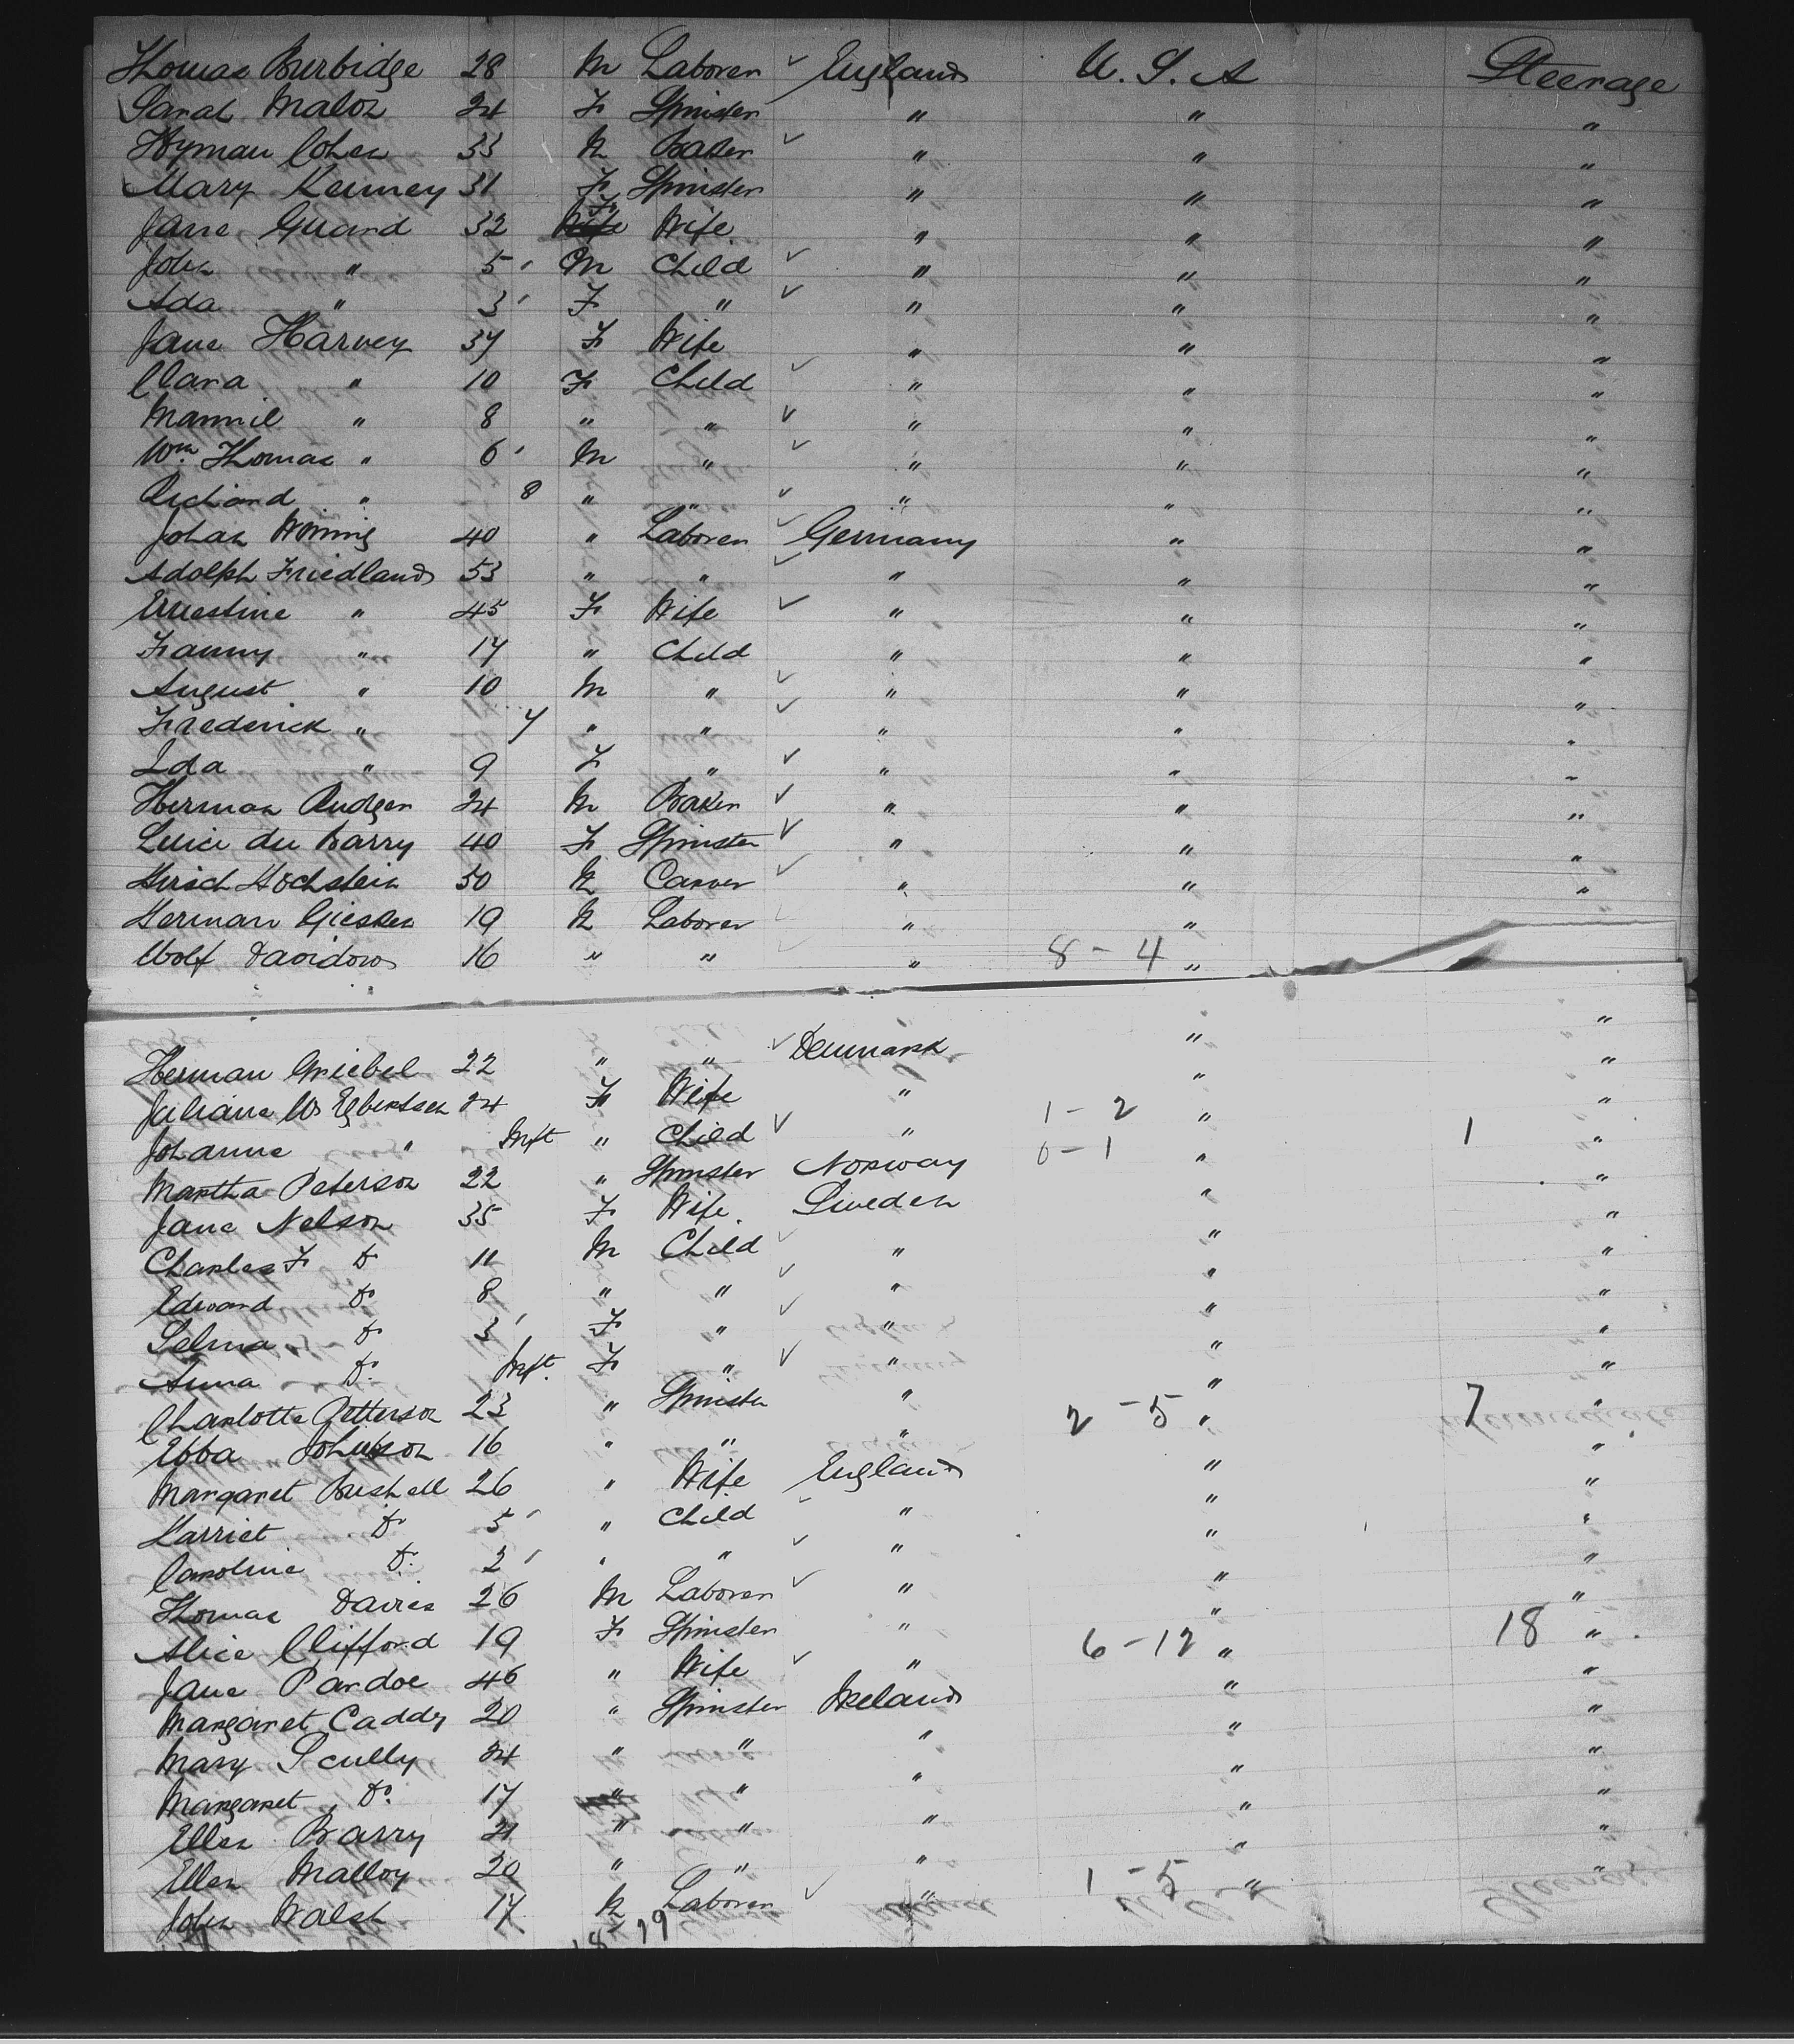 Thomas Burbidge 28 M Laborer ✓ England U.S.A Steerage
Sarah Malon 24 F Spinster " " "
Hyman Cohen 33 M Baker ✓ " " "
Mary Kenney 31 F Spinster " " "
Jane Guard 32 F Wife " " "
John " 5 M Child ✓ " " "
Ada " 3 F " ✓ " " "
Jane Harvey 37 F Wife " " "
Clara " 10 F Child ✓ " " "
Mannil " 8 " " ✓ " " "
Wm Thomas " 6 M " ✓ " " "
Richard " 8 " " ✓ " " "
Johan 40 " Laborer ✓ Germany " "
Adolph Friedland 53 " " ✓ " " "
Ernestine " 45 F Wife ✓ " " "
Fanny " 17 " Child " " "
August " 10 M " ✓ " " "
Frederick " 7 " " ✓ " " "
Ida " 9 F " ✓ " " "
Herman Rudger 24 M Baker ✓ " " "
Luici du Barry 40 F Spinster ✓ " " "
Hirsch Hochstein 50 M Carver ✓ " " "
Herman Giesken 19 M Laborer ✓ " "
Wolf Davidow 16 " " " 8-4 "
Herman Griebel 22 " " ✓ Denmark " "
Juliane W Egbertsen 24 F Wife " " "
Johanne " Inft " Child ✓ " 1-2 " "
Martha Peterson 22 " Spinster Norway 0-1 " 1 "
Jane Nelson 35 F Wife Sweden " "
Charles F Do 11 M Child ✓ " " "
Edward Do 8 " " ✓ " " "
Selma Do 3 F " ✓ " " "
Anna Do. Inft. F " ✓ " " "
Charlotte Petterson 23 " Spinster " " "
Ebba Johnson 16 " " " 2-5 " 7 "
Margaret Bushell 26 " Wife England " "
Harriet Do 5 " Child ✓ " " "
Caroline Do. 2 " " ✓ " " "
Thomas Davies 26 M Laborer ✓ " " "
Alice Clifford 19 F Spinster " " "
Jane Pardoe 46 " Wife ✓ " 6-12 " 18 "
Margaret Caddy 20 " Spinster Ireland " "
Mary Scully 24 " " " " "
Margaret Do. 17 " " " " "
Ellen Barry 21 " " " " "
Ellen Malloy 20 " " " " "
John Walsh 17 M Laborer ✓ " 1-5 " "